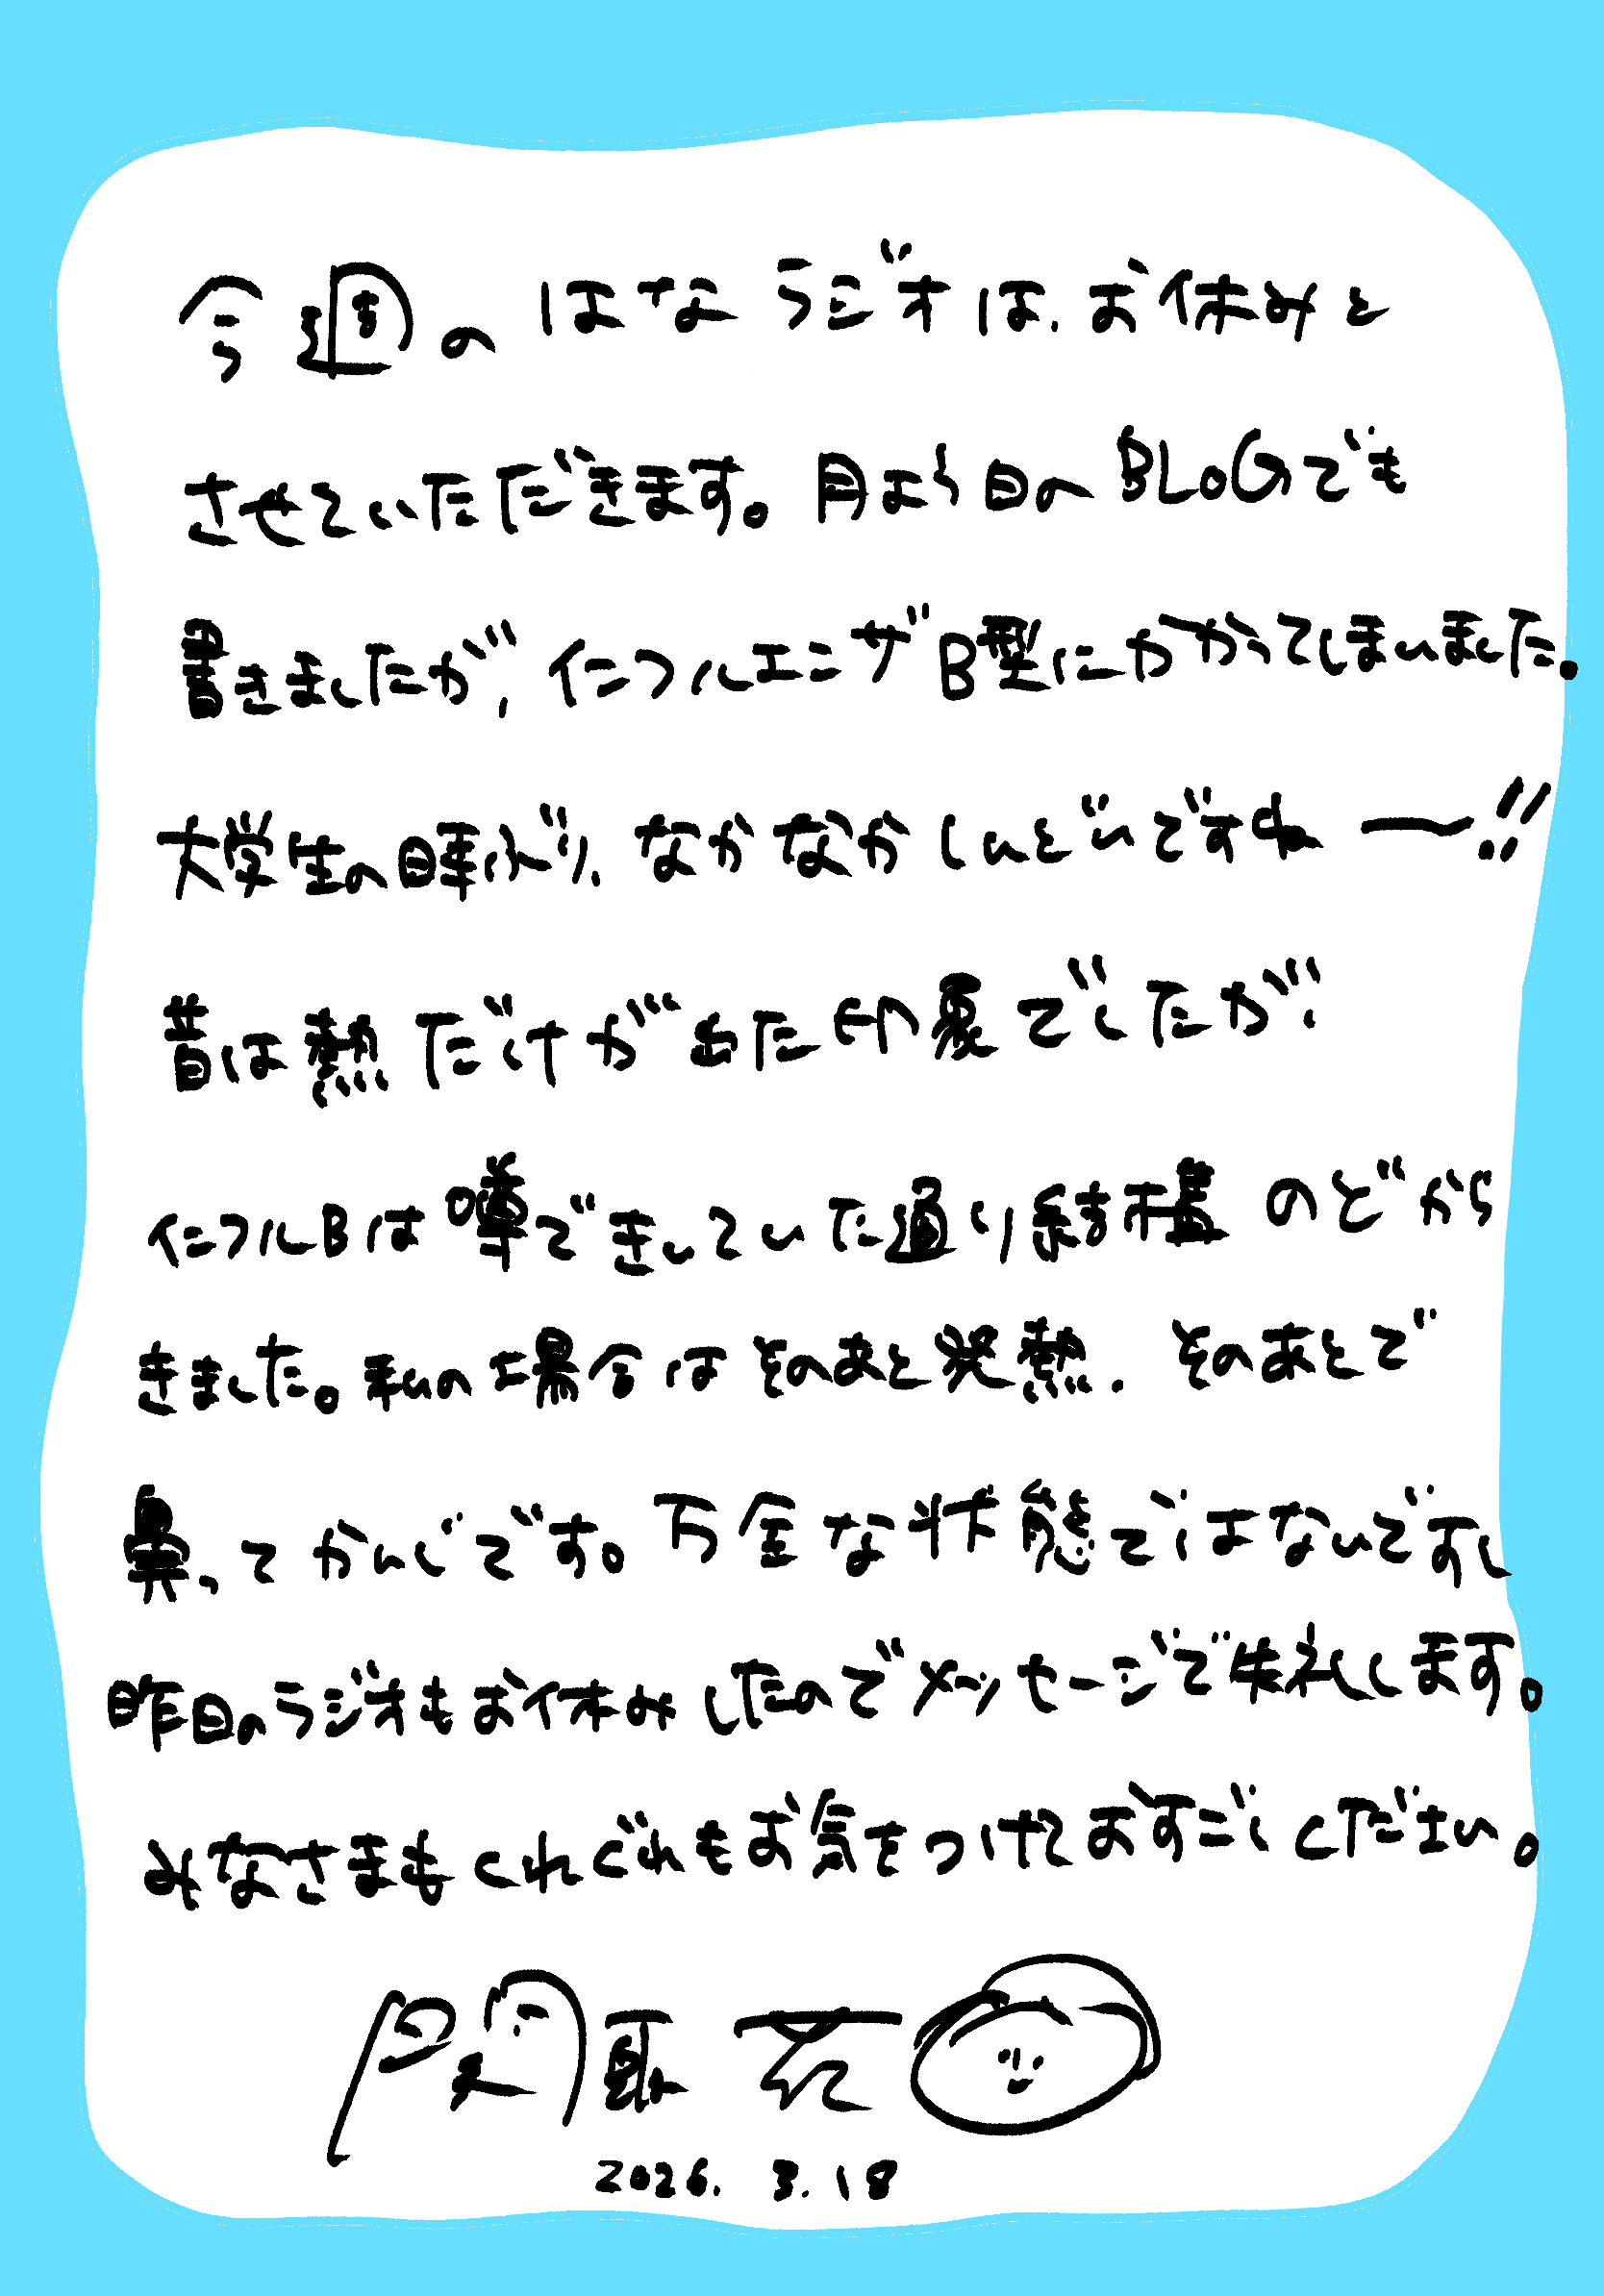 今週のはなラジオは、お休みと
させていただきます。月よう日のBLOGでも
書きましたが、インフルエンザB型にかかってしまいました。
大学生の時ぶり、なかなかしんどいですねー!!
昔は熱だけが出た印象でしたが、
インフルBは噂できいていた通り結構のどから
きました。私の場合はそのあと発熱、そのあとで
鼻ってかんじです。万全な状態ではないですし
昨日のラジオもお休みしたのでメッセージで失礼します。
みなさまもくれぐれもお気をつけておすごしください。
関取花
2026.3.18